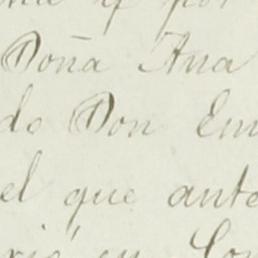 y por
Doña Ana
do Don Em
el que ante
en Con